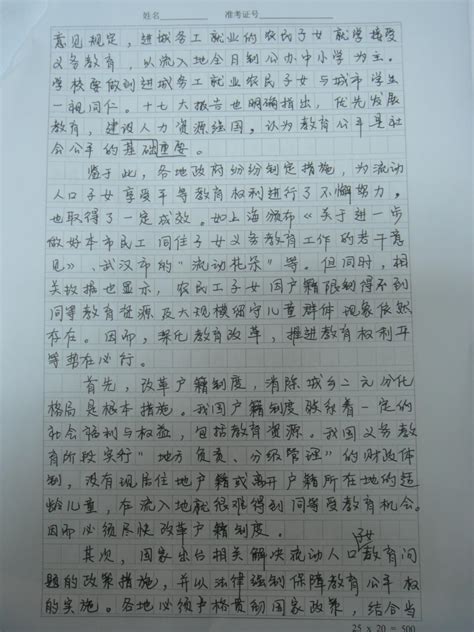 姓名 准考证号
意见规定，进城务工就业的农民子女就学接受
义务教育，以流入地全日制公办中小学为主。
学校要做到进城务工就业农民子女与城市学生
一视同仁。十七大报告也明确指出，优先发展
教育，建设人力资源强国，认为教育公平是社
会公平的基础重要。
鉴于此，各地政府纷纷制定措施，为流动
人口子女享受平等教育权利进行了不懈努力，
也取得了一定成效。如上海颁布《关于进一步
做好本市民工同住子女义务教育工作的若干意
见》、武汉市的"流动花朵"等。但同时，相
关数据也显示，农民工子女因户籍限制得不到
同等教育资源及大规模留守儿童群体现象依然
存在。因而，深化教育改革，推进教育权利平
等势在必行。
首先，改革户籍制度，消除城乡二元分化
格局是根本措施。我国户籍制度联系着一定的
社会福利与权益，包括教育资源。我国义务教
育阶段实行"地方负责、分级管理"的财政体
制，没有现居住地户籍或离开户籍所在地的适
龄儿童，在流入地就很难得到同等受教育机会。
因而必须尽快改革户籍制度。
其次，国家出台相关解决流动人口子女教育问
题的政策措施，并以法律强制保障教育公平权
的实施。各地必须严格贯彻国家政策，结合当
25 x 20 = 500